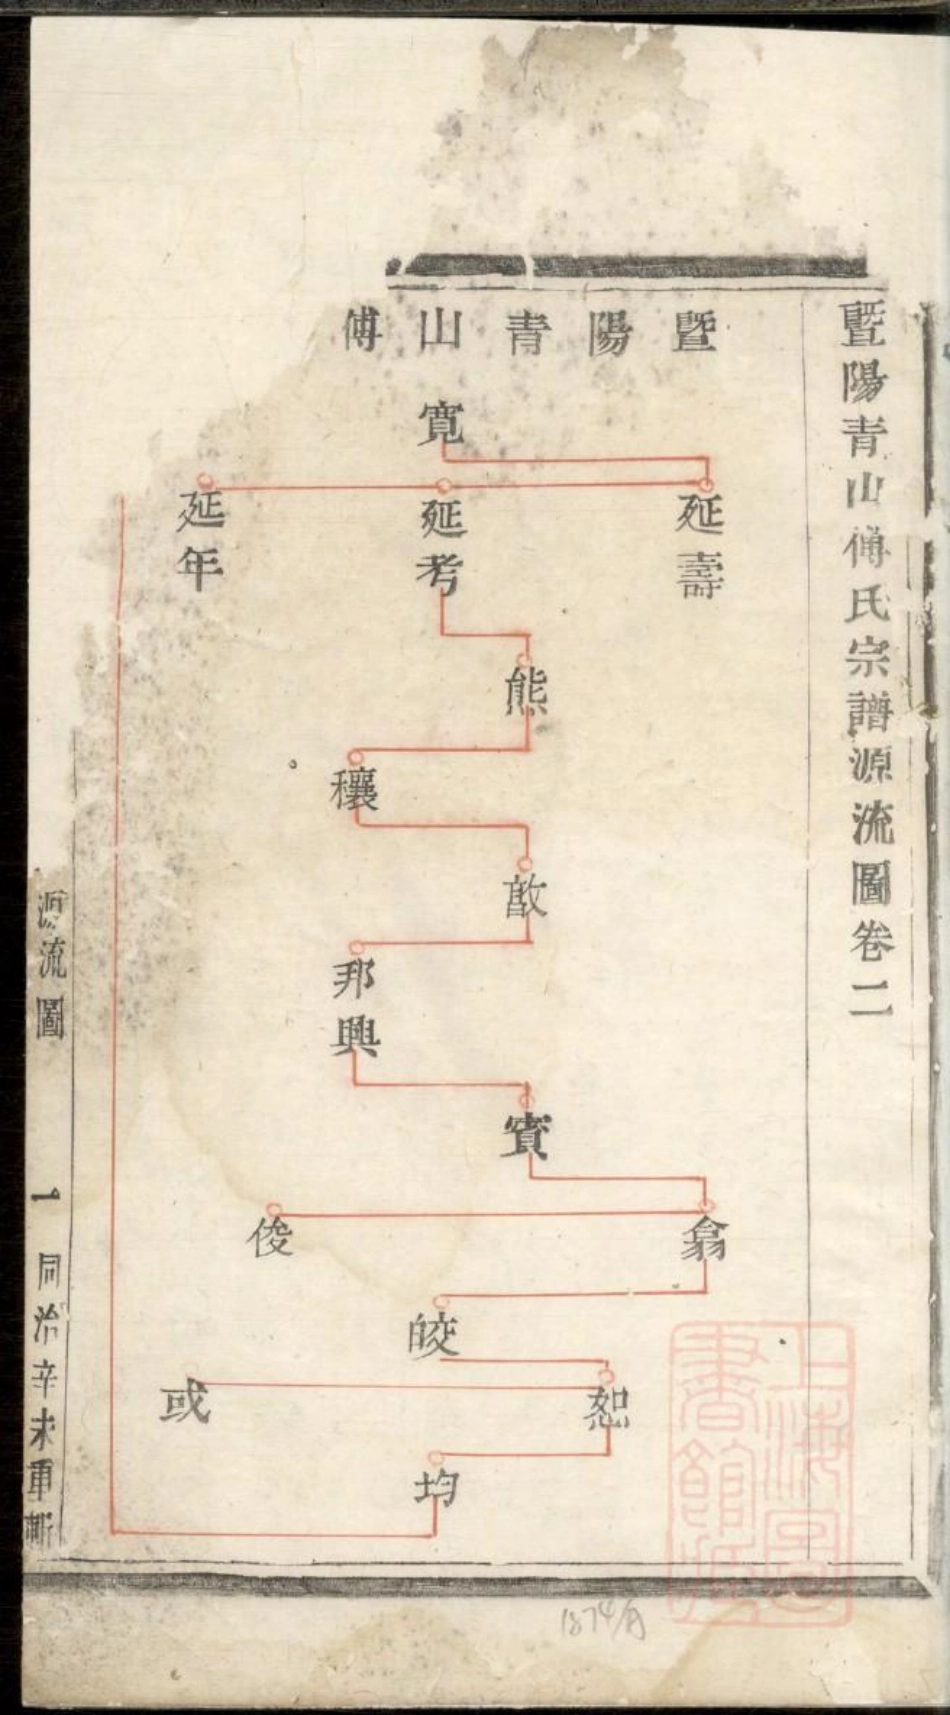 暨陽青山傅氏宗譜源流圖卷二
暨陽青山傅
寬
延壽
延考
延年
熊
穰
敔
邦興
賓
翕
俊
皎
恕
或
均
源流圖
一
同治辛未重
上海圖書館藏